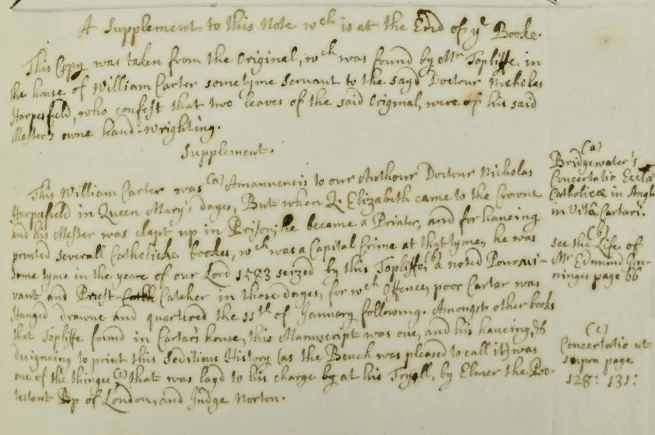 A Supplement to this Note wch is at the End of ye Booke.
This Copy was taken from the Original, wch was found by Mr Topliffe in
the house of William Carter sometyme Servant to the sayd Doctour Nicholas
Harpesfield, who confest that two leaves of the said Original, were of his said
Master's owne hand-wrighting.
Supplement.
This William Carter was (a) Amanuensis to our Authour Doctour Nicholas
Harpesfield in Queen Mary's dayes, But when Q: Elizabeth came to the Crowne
and his Master was clapt up in Prison, he became a Printer, and for haveing
printed severall Catholicke bookes, wch was a Capital Crime at that tyme, he was
some tyme in the yeare of our Lord 1583 seized by this Topliffe (b) a noted Poursui-
vant and Priest Catcher in those dayes, for wch Offence, poor Carter was
Hanged drawne and quartered the 11th of January following. Amongst other books
that Topliffe found in Carters house, this Manuscript was one, and his haveing
designeing to print this Seditious History (as the Bench was pleased to call it) was
one of the thinges (c) that was layd to his charge at his Tryall, by Elmer the Pro-
testant Bp of London, and Judge Norton.
(a)
Bridgewater's
Concertatio Eccla
Catholicæ in Angl
in Vitâ Carteri.
(b)
see the Life of
Mr Edmund Gen-
ninges page 66
(c)
Concertatio ut
supra page
128: 131: